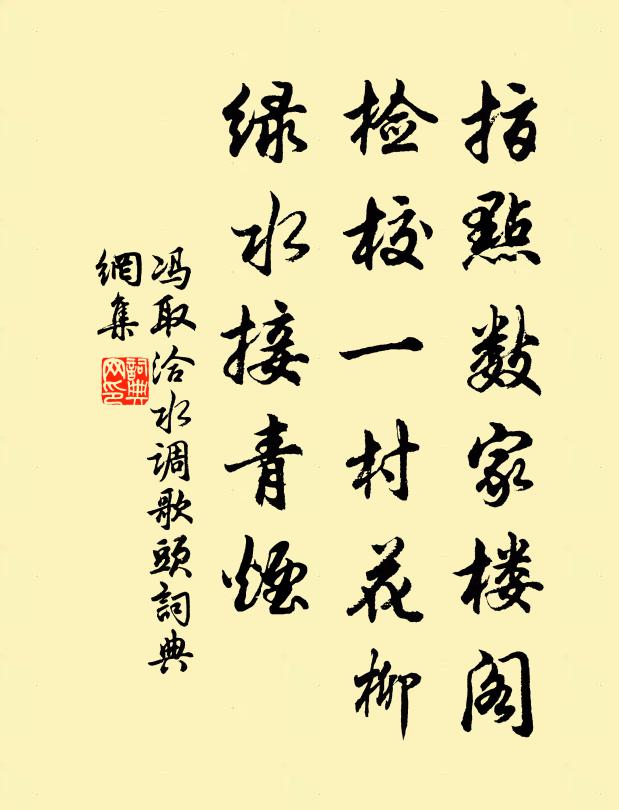 指點数家楼阁
检校一村花柳
绿水接青煙
冯取洽水调歌頭詞典
網集
詞典
网印